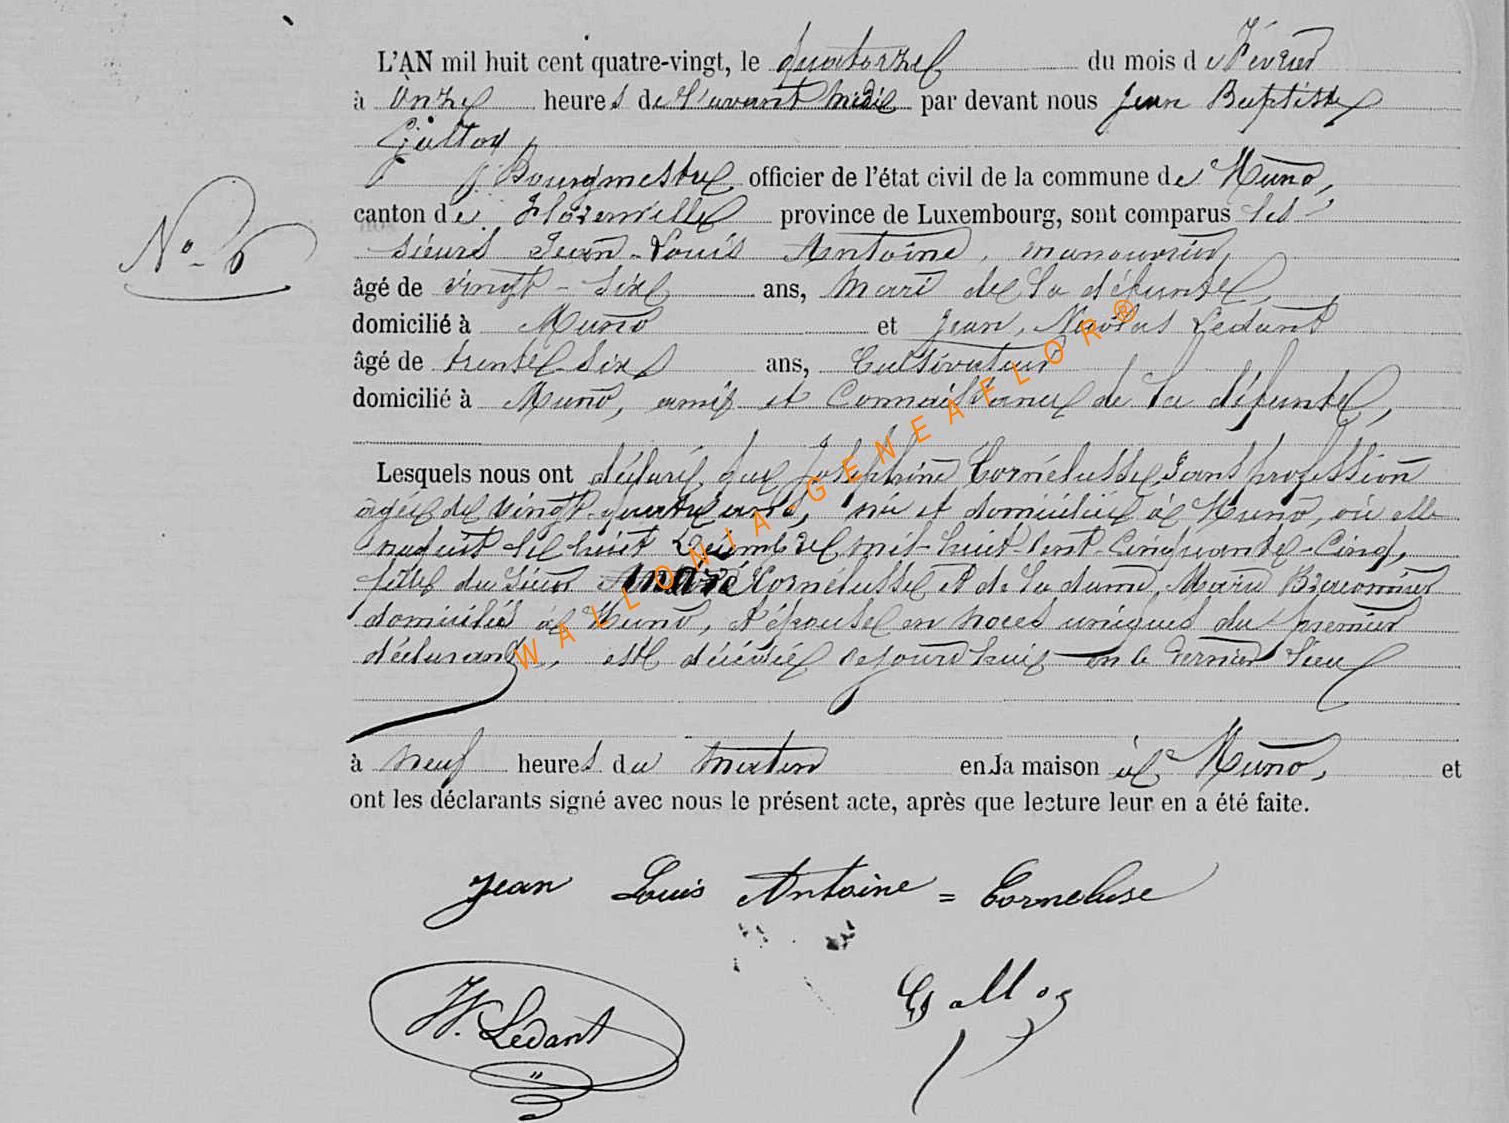 L'AN mil huit cent quatre-vingt, le quatorze du mois de Février
à onze heures de l'avant midi par devant nous Jean Baptiste
Galloy
Bourgmestre officier de l'état civil de la commune de Muno,
canton de Florenville province de Luxembourg, sont comparus les
N° 6
sieurs Jean-Louis Antoine, manouvrier,
âgé de vingt-six ans, mari de la défunte,
domicilié à Muno et Jean Nicolas Ledant
âgé de trente-six ans, Cultivateur
domicilié à Muno, ami et Connaissance de la défunte,
Lesquels nous ont déclaré que Joséphine Cornélusse, sans profession
agée de vingt-quatre ans, née et domiciliée à Muno, où elle
naquit le huit Décembre mil-huit-cent-cinquante-cinq,
fille du sieur André Cornélusse et de la dame Marie Braconnier
domiciliés à Muno, et épouse en noces uniques du premier
déclarant, est décédée cejourd'hui en ce dernier lieu
à neuf heures du matin en la maison à Muno, et
ont les déclarants signé avec nous le présent acte, après que lecture leur en a été faite.
Jean Louis Antoine = Corneluse
N. Lédant
Galloy
WALLONIA-GENEAFLOR®